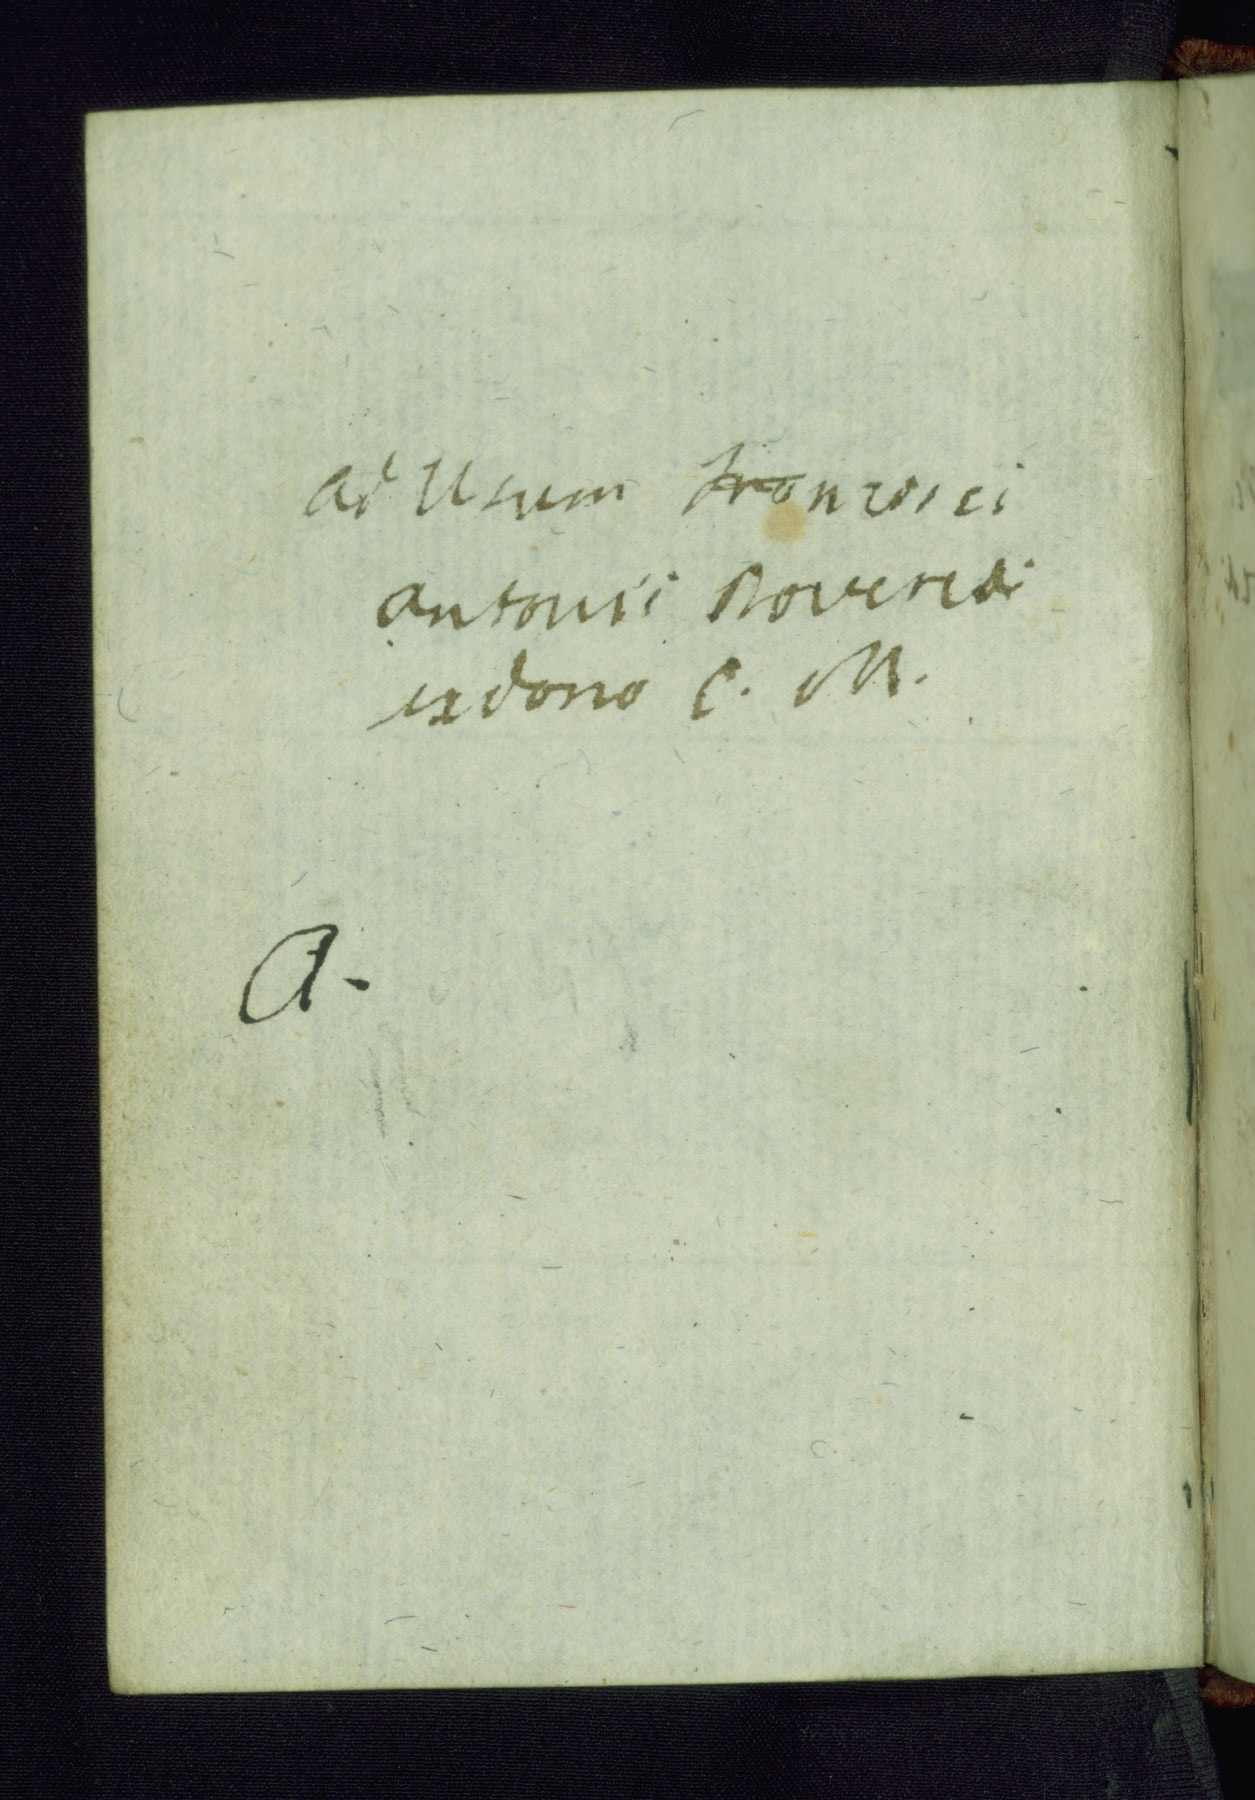 ad Usum Francisci
Antonii Roveredi
ex dono C. M.
A.